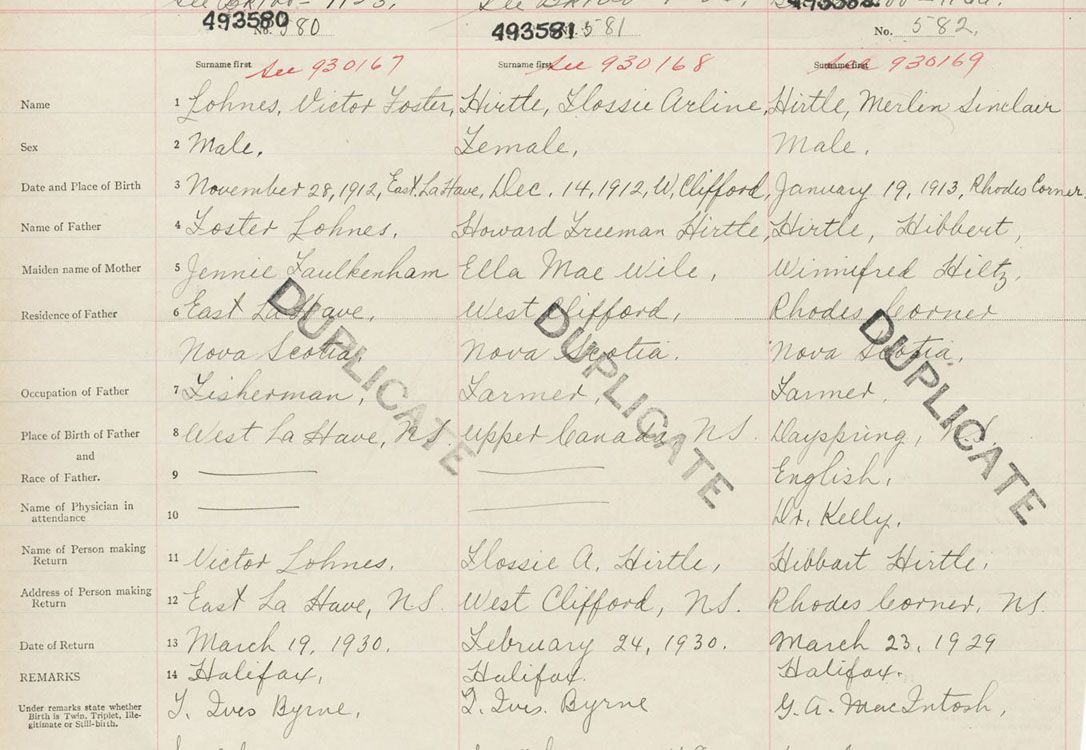 493580 493581
No. 580 581 No. 582.
Surname first See 930167 Surname first See 930168 Surname first See 930169
Name 1 Lohnes, Victor Foster, Hirtle, Flossie Arline, Hirtle, Merlin Sinclair
Sex 2 Male. Female, Male.
Date and Place of Birth 3 November 28, 1912, East La Have, Dec. 14, 1912, W. Clifford, January 19, 1913, Rhodes Corner
Name of Father 4 Foster Lohnes. Howard Freeman Hirtle, Hirtle, Hibbert,
Maiden name of Mother 5 Jennie Faulkenham Ella Mae Wile, Winnifred Hiltz,
Residence of Father 6 East La Have, West Clifford, Rhodes Corner
Nova Scotia, Nova Scotia. Nova Scotia,
DUPLICATE DUPLICATE DUPLICATE
Occupation of Father 7 Fisherman, Farmer, Farmer,
Place of Birth of Father 8 West La Have, NS. Upper Canada, NS. Dayspring,
and
Race of Father. 9 English,
Name of Physician in
attendance 10 Dr. Kelly.
Name of Person making
Return 11 Victor Lohnes. Flossie A. Hirtle, Hibbart Hirtle,
Address of Person making
Return 12 East La Have, NS. West Clifford, NS. Rhodes Corner, NS.
Date of Return 13 March 19, 1930. February 24, 1930. March 23, 1929
REMARKS 14 Halifax, Halifax. Halifax.
Under remarks state whether
Birth is Twin, Triplet, Ille-
gitimate or Still-birth.
T. Ives Byrne, T. Ives. Byrne G. A. MacIntosh,